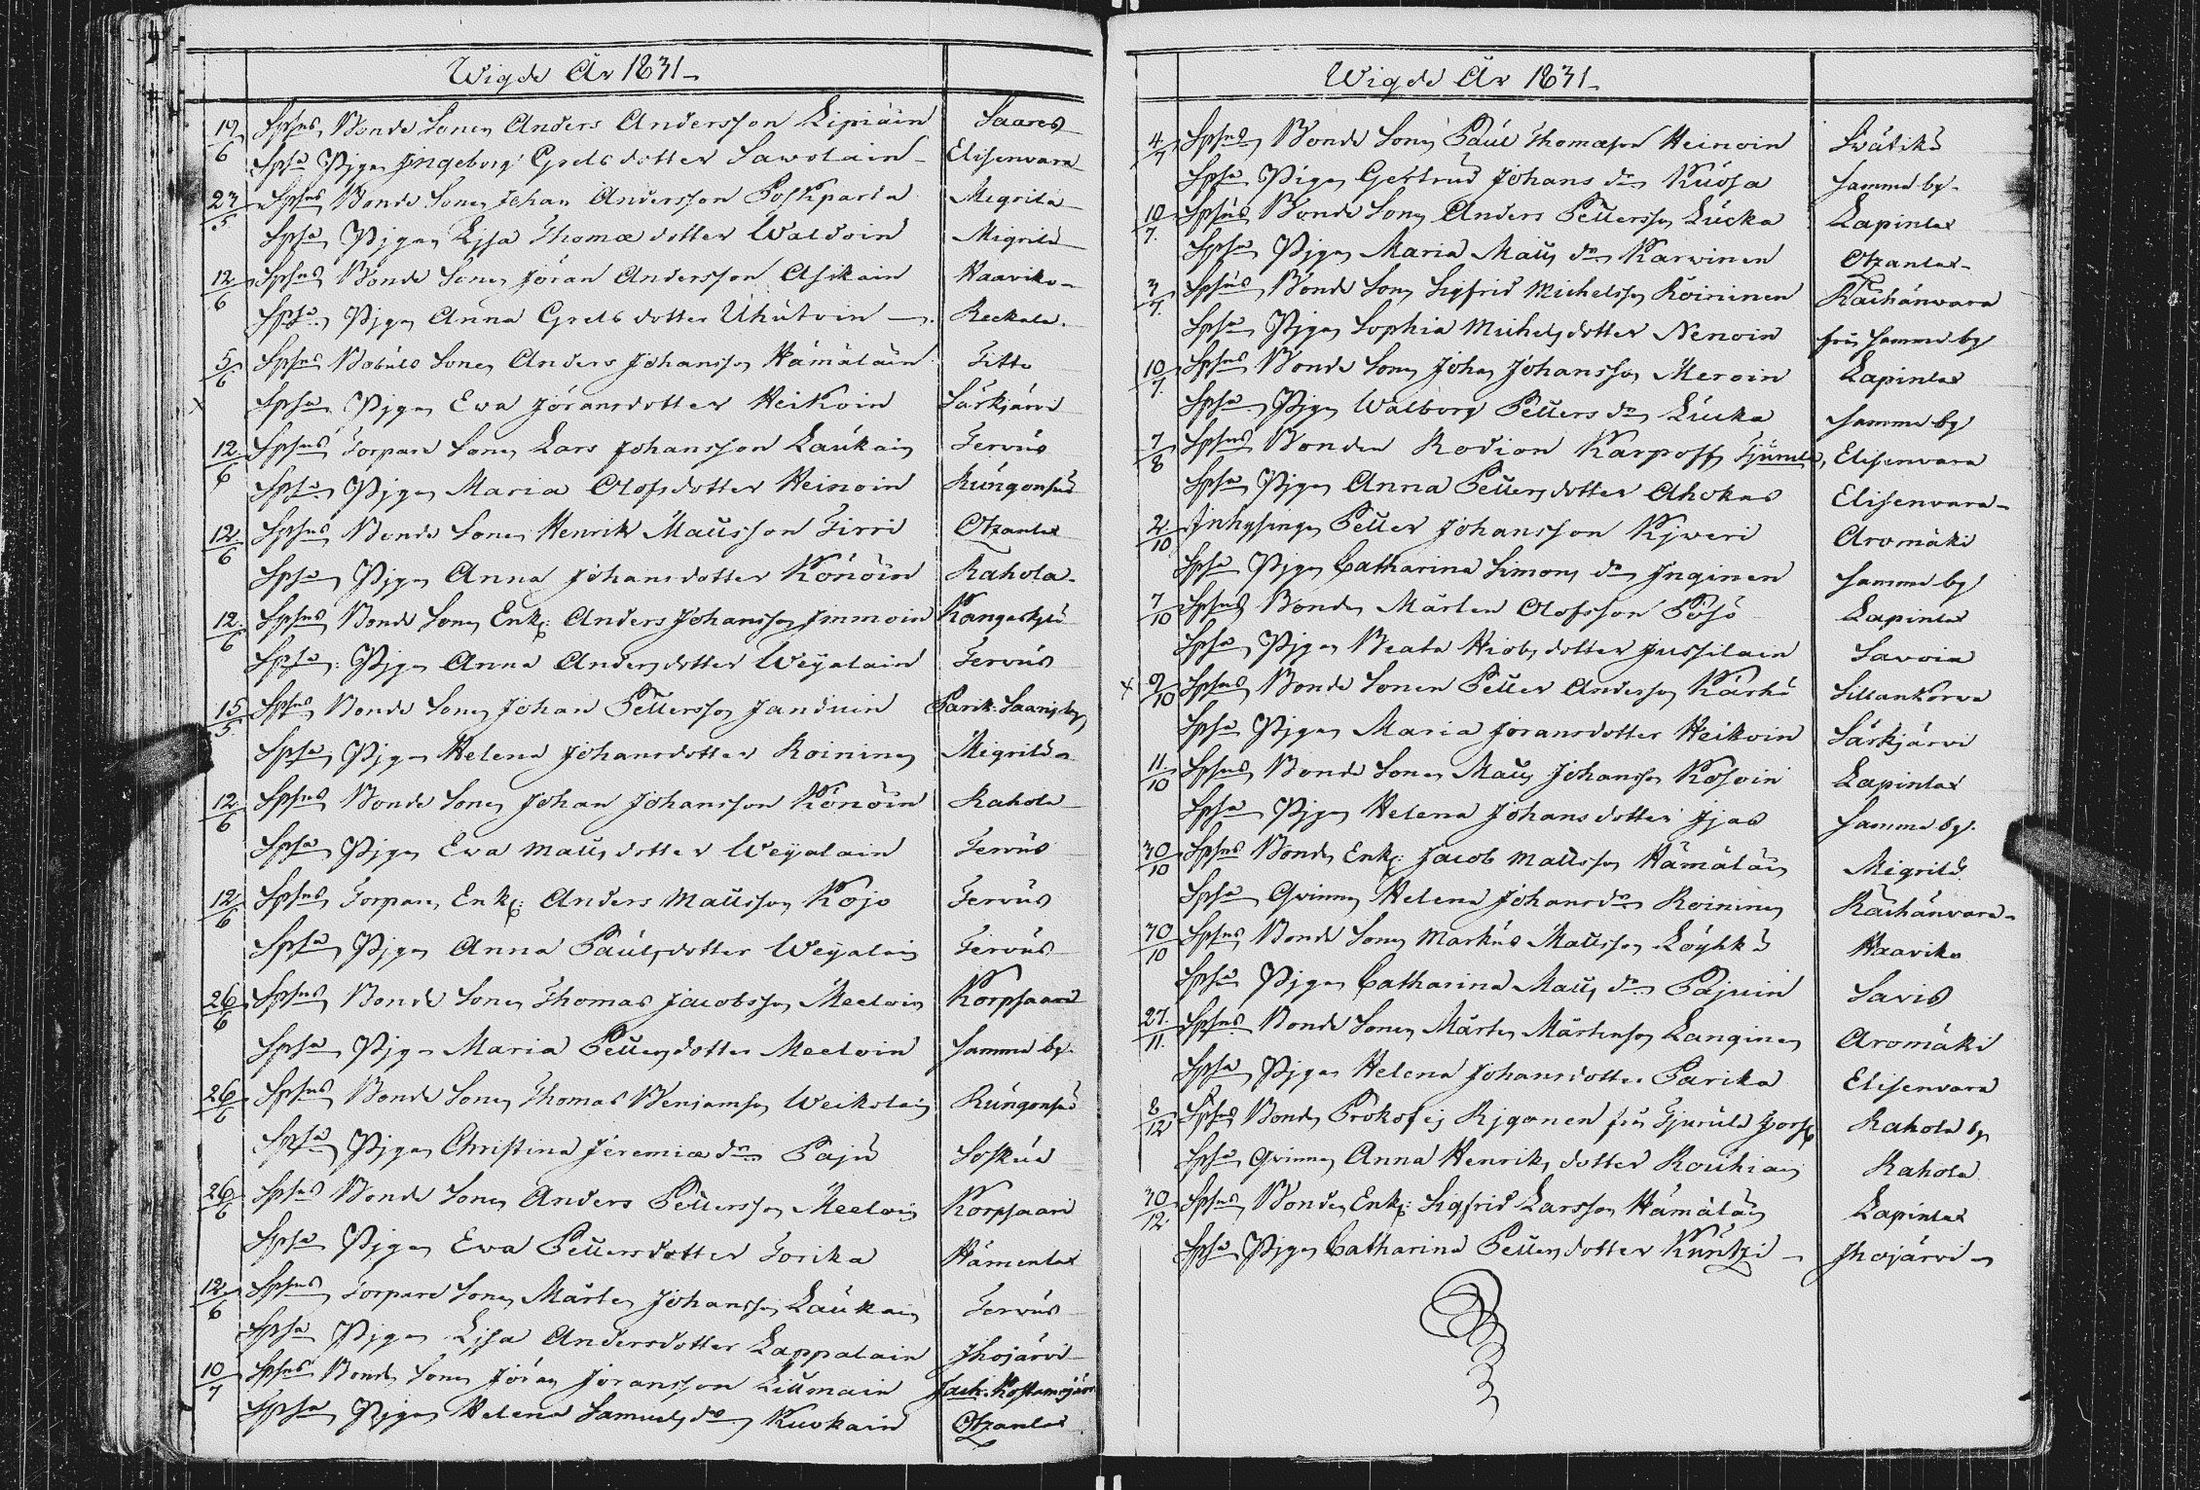 Wigde År 1831
19/6 Spsns Bonde Sonen Anders Andersson Lipiäin Saares
Spsa Pigan Ingeborg Grels dotter Sawolain Elisenvara
23/5 Spsns Bonde Sonen Johan Andersson Poskparta Migrila
Spsa Pigan Lisa Thomæ dotter Waldoin Migrilä
12/6 Spsns Bonde Sonen Jöran Andersson Asikain Haaviko
Spsa Pigan Anna Grels dotter Uhutoin Reekala
5/6 Spsns Bobuls Sonen Anders Johansson Hämäläin Titto
x Spsa Pigan Ewa Jöransdotter Heikoin Särkjärvi
12/6 Spsns Torpare Sonen Lars Johansson Laukain Tervus
Spsa Pigan Maria Olofsdotter Heinoin Rungonsuo
12/6 Spsns Bonde Sonen Henrik Matsson Tirri Otzanlax
Spsa Pigan Anna Johansdotter Könöin Rahola
12/6 Spsns Bonde Sonen Enk: Anders Johansson Immoin Kangaskylä
Spsa Pigan Anna Andersdotter Weyalain Tervus
15/5 Spsns Bonde Sonen Johan Pettersson Janduin Parik: Saaris by
Spsa Pigan Helena Johansdotter Roininen Migrilä
12/6 Spsns Bonde Sonen Johan Johansson Könöin Rahola
Spsa Pigan Ewa Matts dotter Weyalain Tervus
12/6 Spsns Torpare Enk: Anders Mattsson Kojo Tervus
Spsa Pigan Anna Paulsdotter Weyalain Tervus
26/6 Spsns Bonde Sonen Thomas Jacobsson Meeloin Korpsaari
Spsa Pigan Maria Pettersdotter Meeloin Samma by
26/6 Spsns Bonde Sonen Thomas Benjamsson Weikolain Rungonsuo
Spsa Pigan Christina Jeremiæ dr Paju Soskua
26/6 Spsns Bonde Sonen Anders Pettersson Meeloin Korpsaari
Spsa Pigan Ewa Pettersdotter Torika Hämenlax
12/6 Spsns Torpare Sonen Mårten Johansson Laukain Tervus
Spsa Pigan Lisa Andersdotter Lappalain Ihojärvi
10/7 Spsns Bonde Sonen Jöran Jöransson Littmain Jack. Kostamojärvi
Spsa Pigan Helena Samuels dr Kuokain Otzanlax
Wigde År 1831
4/7 Spsns Bonde Sonen Paul Thomæson Heinoin Svätikö
Spsa Pigan Gertrud Johans dr Kuosa Samma by
10/7 Spsns Bonde Sonen Anders Pettersson Lucka Lapinlax
Spsa Pigan Maria Matts dr Karwinen Otzanlax
3/7 Spsns Bonde Sonen Sigfrid Michelsson Roininen Räihänvara
Spsa Pigan Sophia Michelsdotter Nenoin från Samma by
10/7 Spsns Bonde Sonen Johan Johansson Meroin Lapinlax
Spsa Pigan Walborg Petters dr Lucka Samma by
7/8 Spsns Bonden Rodion Karpoff Tjurula, Elisenvara
Spsa Pigan Anna Pettersdotter Ahokas Elisenvara
2/10 Inhysingen Petter Johansson Kjweri Aromäki
Spsa Pigan Catharina Simons dr Inginen Samma by
7/10 Spsns Bonden Mårten Olofsson Pösö Lapinlax
Spsa Pigan Beata Hiobs dotter Jussilain Savoia
x 9/10 Spsns Bonde Sonen Petter Andersson Kärki Sillankorva
Spsa Pigan Maria Jöransdotter Heikoin Särkjärvi
11/10 Spsns Bonde Sonen Matts Johansson Kosoin Lapinlax
Spsa Pigan Helena Johansdotter Ijas Samma by
30/10 Spsns Bonde Enk: Jacob Mattsson Hämäläin Migrilä
Spsa Qvinnan Helena Johans dr Roininen Räihänvara
30/10 Spsns Bonde Sonen Markus Mattsson Löyhkö Haaviko
Spsa Pigan Catharina Matts dr Pajuin Savis
27/11 Spsns Bonde Sonen Mårten Mårtensson Langinen Aromäki
Spsa Pigan Helena Johansdotter Parika Elisenvara
8/12 Spsns Bonden Prokofej Rjgonen från Tjurula Rahola by
Spsa Qvinnan Anna Henriks dotter Rouhiain Rahola
30/12 Spsns Bonden Enk: Sigfrid Larsson Hämäläin Lapinlax
Spsa Pigan Catharina Pettersdotter Kuntzi Ihojärvi